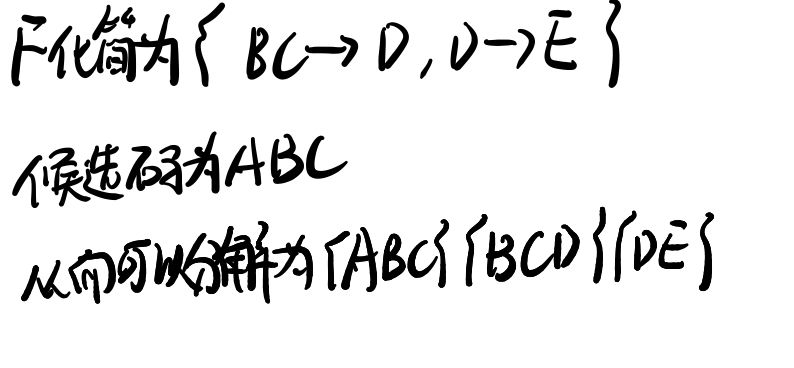 F化简为{ BC→D, D→E }
候选码为ABC
从而可以分解为{ABC}{BCD}{DE}